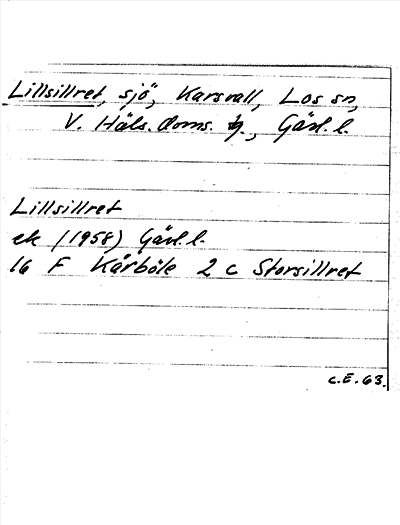 Lillsillret, sjö, Karsvall, Los sn,
V. Häls. doms. tg., Gävl. l.
Lillsillret
ek (1958) Gävl. l.
16 F Kårböle 2 c Storsillret
C.E. 63.